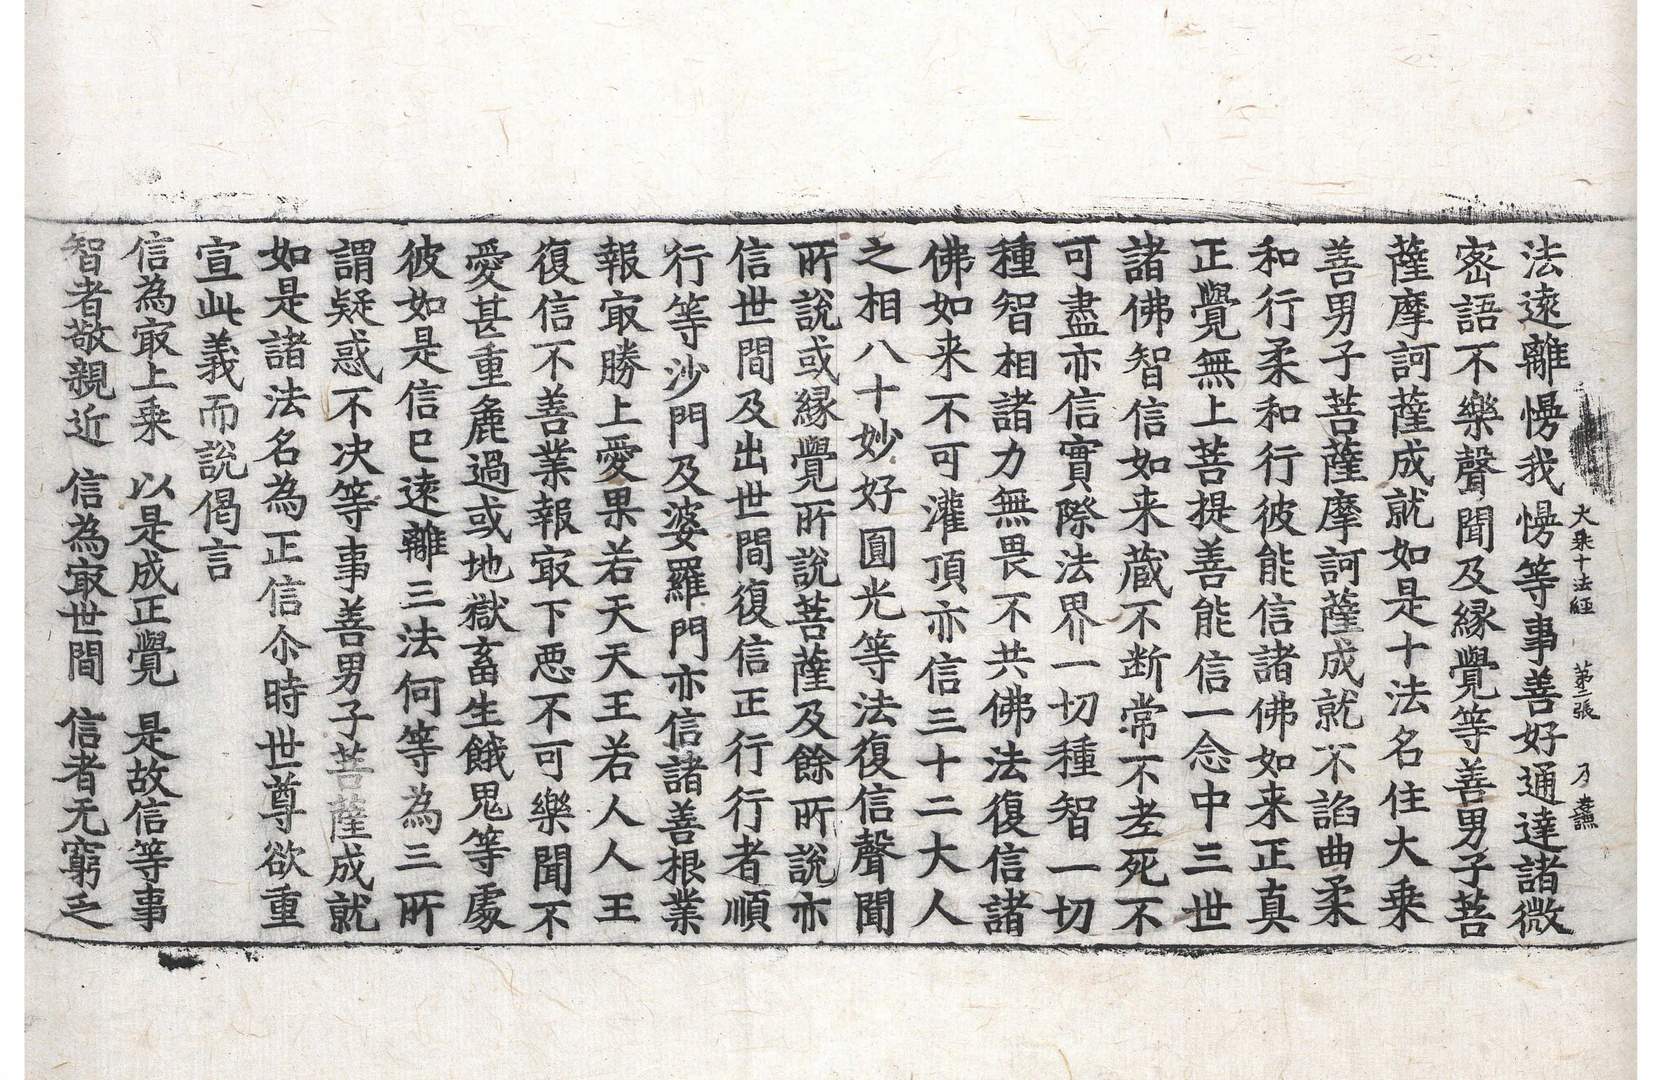 大乘十法經　第二張　乃
法遠離慢我慢等事善好通達諸微
密語不樂聲聞及縁覺等善男子菩
薩摩訶薩成就如是十法名住大乘
善男子菩薩摩訶薩成就不諂曲柔
和行柔和行彼能信諸佛如来正真
正覺無上菩提善能信一念中三世
諸佛智信如来蔵不断常不老死不
可盡亦信實際法界一切種智一切
種智相諸力無畏不共佛法復信諸
佛如来不可灌頂亦信三十二大人
之相八十妙好圓光等法復信聲聞
所說或縁覺所說菩薩及餘所說亦
信世間及出世間復信正行行者順
行等沙門及婆羅門亦信諸善根業
報㝡勝上愛果若天天王若人人王
復信不善業報㝡下惡不可樂聞不
愛甚重麁過或地獄畜生餓鬼等處
彼如是信已遠離三法何等為三所
謂疑惑不决等事善男子菩薩成就
如是諸法名為正信尒時世尊欲重
宣此義而說偈言
信為㝡上乘　以是成正覺　是故信等事
智者敬親近　信為㝡世間　信者无窮乏